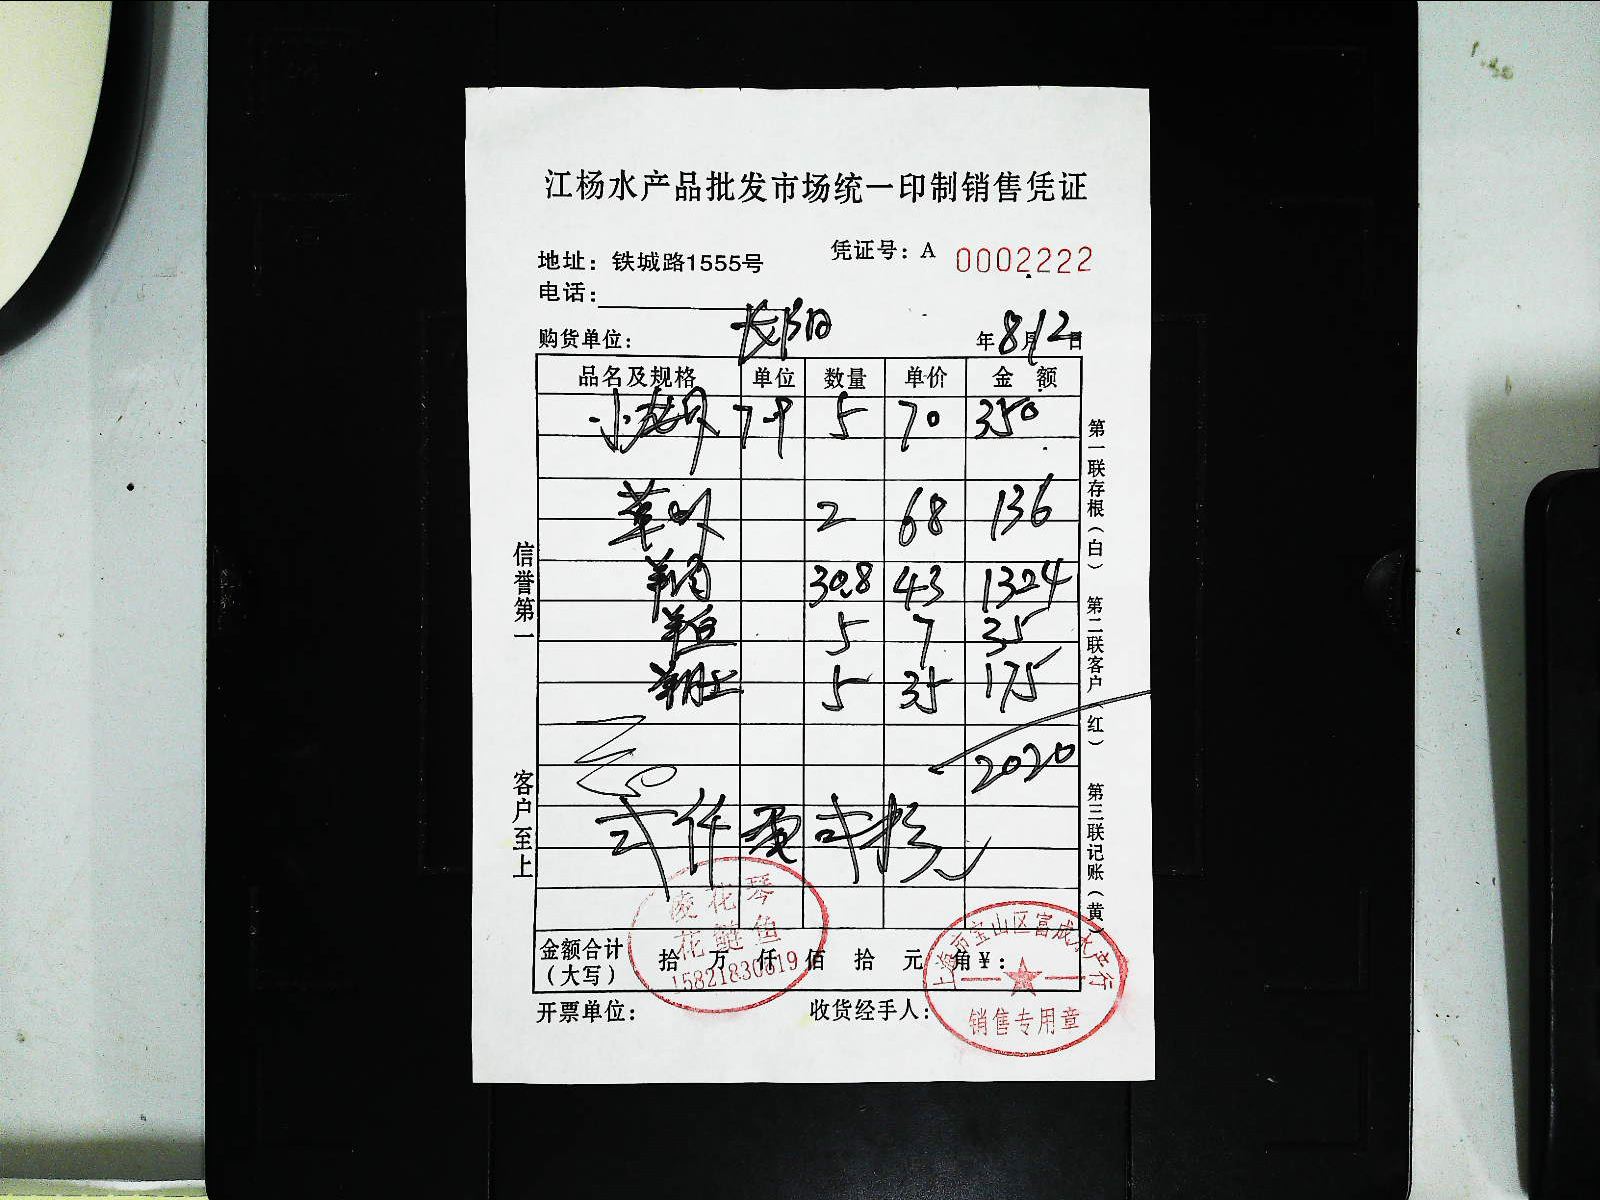 江杨水产品批发市场统一印制销售凭证
地址：铁城路1555号
凭证号：A 0002222
电话：
购货单位：
年8月12日
品名及规格 单位 数量 单价 金额
小龙虾 7-9 5 70 350
2 68 136
羊肉 30.8 43 1324
5 7 35
羊肚 5 35 175
2020
弍仟零弍拾元
金额合计（大写） 拾 万 仟 佰 拾 元 角 ¥：
开票单位：
收货经手人：
信誉第一
客户至上
第一联存根（白）
第二联客户（红）
第三联记账（黄）
凌花琴
花鲢鱼
15821830619
上海市宝山区富成水产行
销售专用章